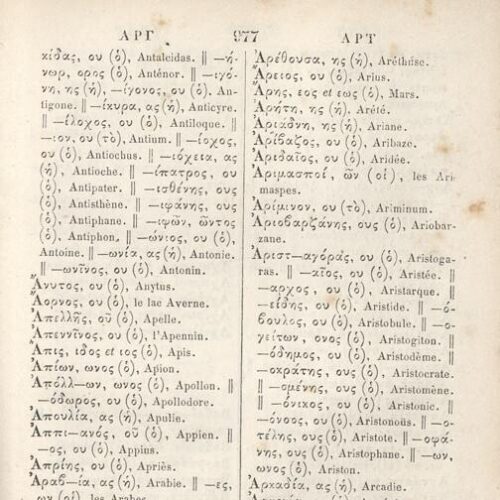 ΑΡΓ 977 ΑΡΤ
κίδας, ου (ὁ), Antalcidas. ‖ —ή-
νωρ, ορος (ὁ), Anténor. ‖ —ιγό-
νη, ης (ἡ), —ίγονος, ου (ὁ), An-
tigone. ‖ —ίκυρα, ας (ἡ), Anticyre.
‖ —ίλοχος, ου (ὁ), Antiloque. ‖
—ιον, ου (τὸ), Antium. ‖ —ίοχος,
ου (ὁ), Antiochus. ‖ —ιόχεια, ας
(ἡ), Antioche. ‖ —ίπατρος, ου
(ὁ), Antipater. ‖ —ισθένης, ους
(ὁ), Antisthène. ‖ —ιφάνης, ους
(ὁ), Antiphane. ‖ —ιφῶν, ῶντος
(ὁ), Antiphon. ‖ —ώνιος, ου (ὁ),
Antoine. ‖ —ωνία, ας (ἡ), Antonie.
‖ —ωνῖνος, ου (ὁ), Antonin.
Ἄνυτος, ου (ὁ), Anytus.
Ἄορνος, ου (ὁ), le lac Averne.
Ἀπελλῆς, οῦ (ὁ), Apelle.
Ἀπεννῖνος, ου (ὁ), l'Apennin.
Ἆπις, ιδος et ιος (ὁ), Apis.
Ἀπίων, ωνος (ὁ), Apion.
Ἀπόλλ—ων, ωνος (ὁ), Apollon. ‖
—όδωρος, ου (ὁ), Apollodore.
Ἀπουλία, ας (ἡ), Apulie.
Ἀππι—ανός, οῦ (ὁ), Appien. ‖
—ος, ου (ὁ), Appius.
Ἀπρίης, ου (ὁ), Apriès.
Ἀραβ—ία, ας (ἡ), Arabie. ‖ —ες,
ων (οἱ), les Arabes.
Ἀρέθουσα, ης (ἡ), Aréthuse.
Ἄρειος, ου (ὁ), Arius.
Ἄρης, εος et εως (ὁ), Mars.
Ἀρήτη, ης (ἡ), Arété.
Ἀριάδνη, ης (ἡ), Ariane.
Ἀρίβαζος, ου (ὁ), Aribaze.
Ἀριδαῖος, ου (ὁ), Aridée.
Ἀριμασποί, ῶν (οἱ), les Ari-
maspes.
Ἀρίμινον, ου (τὸ), Ariminum.
Ἀριοβαρζάνης, ους (ὁ), Ariobar-
zane.
Ἀριστ—αγόρας, ου (ὁ), Aristoga-
ras. ‖ —αῖος, ου (ὁ), Aristée. ‖
—αρχος, ου (ὁ), Aristarque. ‖
—είδης, ου (ὁ), Aristide. ‖ —ό-
βουλος, ου (ὁ), Aristobule. ‖ —ο-
γείτων, ονος (ὁ), Aristogiton. ‖
—όδημος, ου (ὁ), Aristodème. ‖
—οκράτης, ους (ὁ), Aristocrate.
‖ —ομένης, ους (ὁ), Aristomène.
‖ —όνικος, ου (ὁ), Aristonic. ‖
—όνοος, ου (ὁ), Aristonoüs. ‖ —ο-
τέλης, ους (ὁ), Aristote. ‖ —οφά-
νης, ους (ὁ), Aristophane. ‖ —ων,
ωνος (ὁ), Ariston.
Ἀρκαδία, ας (ἡ), Arcadie.